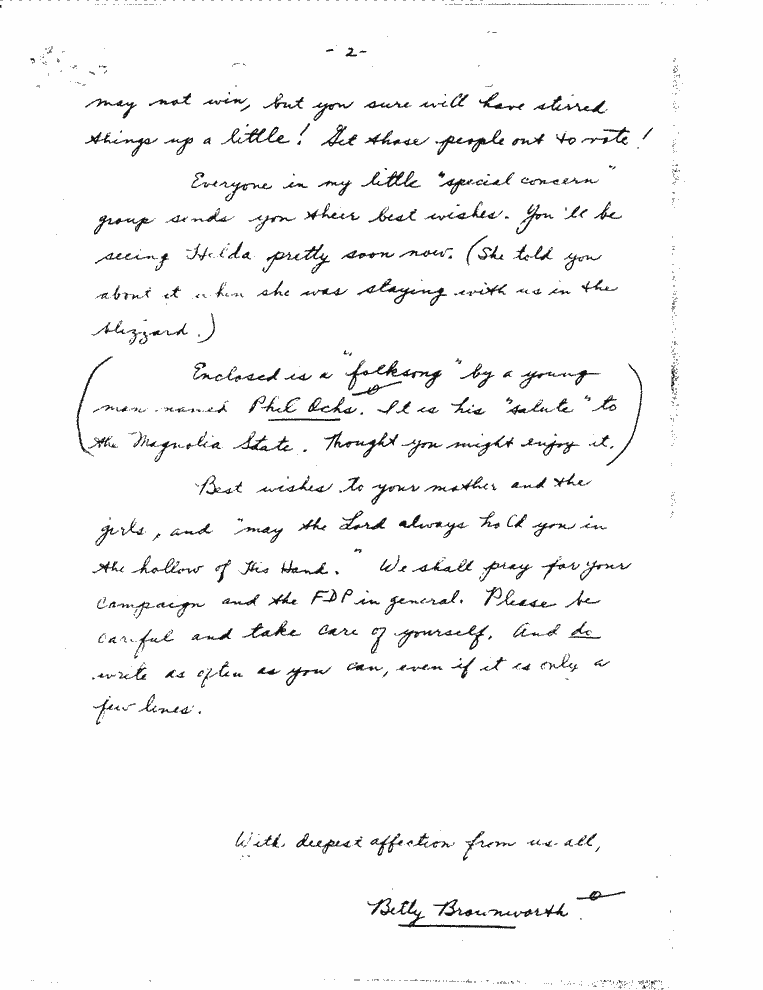 -2-
may not win, but you sure will have stirred
things up a little! Get those people out to vote!
Everyone in my little "special concern"
group sends you their best wishes. You'll be
seeing Helda pretty soon now. (She told you
about it when she was staying with us in the
blizzard.)
(Enclosed is a "folksong" by a young
man named Phil Ochs. It is his "salute" to
the Magnolia State. Thought you might enjoy it.)
Best wishes to your mother and the
girls, and "may the Lord always hold you in
the hollow of His Hand." We shall pray for your
campaign and the FDP in general. Please be
careful and take care of yourself. And do
write as often as you can, even if it is only a
few lines.
With deepest affection from us all,
Betty Brownworth